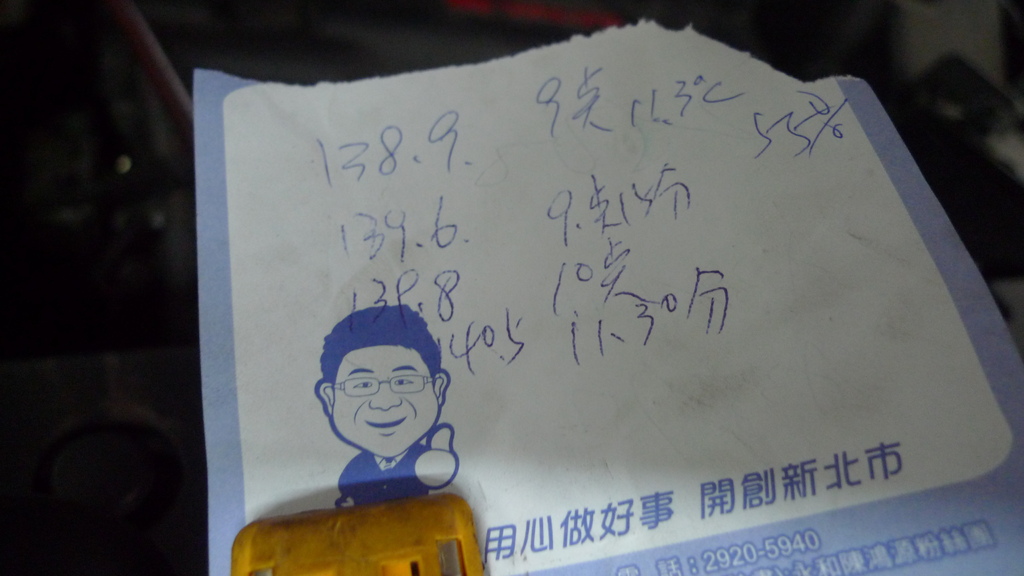 138.9. 9点 11.3℃ 55%
139.6. 9.点15分
139.8 10点
140.5 11.30分
用心做好事 開創新北市
電 話:2920-5940
永和陳鴻源粉絲團